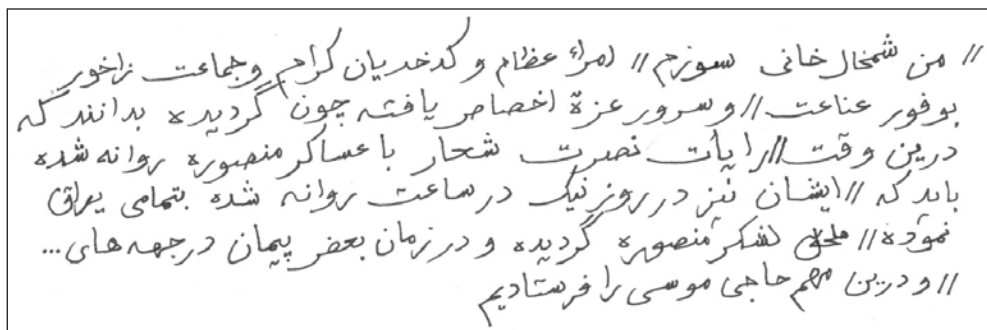 // من شمخال خانی سوزم // امراء عظام و کدخدیان کرام و جماعت زاخور
بوفور عناعت // و سرور عزة اخصاص یافته چون گردیده بدانند که
درین وقت // رایات نصرت شحار با عساکر منصوره روانه شده
باید که // ایشان نیز در روز نیک در ساعت روانه شده بتمامی یراق
نموده // ملحق لشکر منصوره گردیده و در زمان بعض پیمان در جهه های ...
// و درین مهم حاجی موسی را فرستادیم